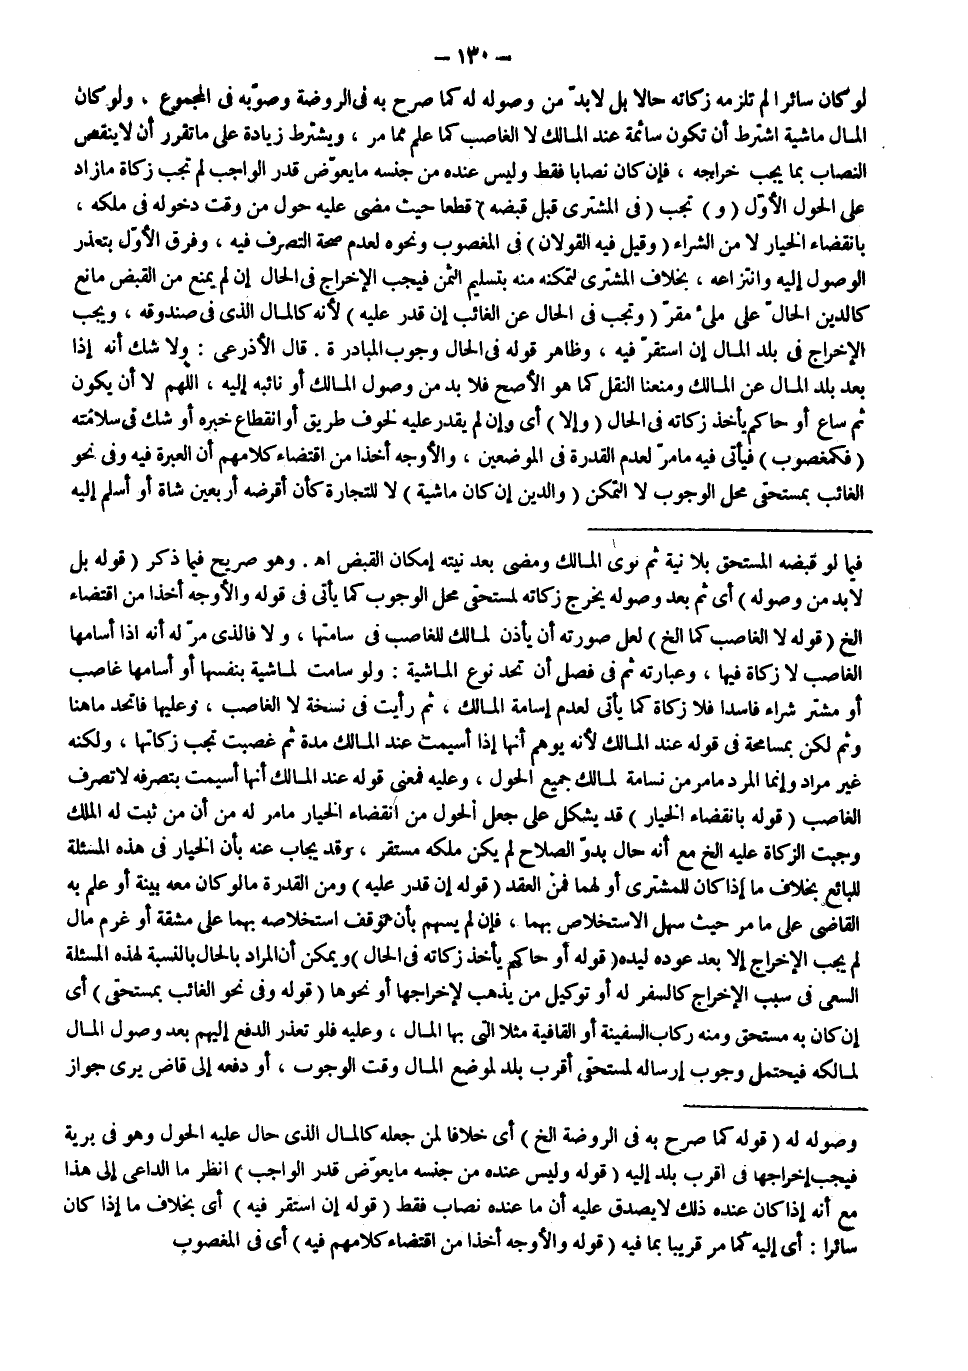 – ١٣٠ –
لو كان سائرا لم تلزمه زكاته حالا بل لابدّ من وصوله له كما صرح به فى الروضة وصوّبه فى المجموع ، ولو كان
المال ماشية اشترط أن تكون سائمة عند المالك لا الغاصب كما علم مما مر ، ويشترط زيادة على ماتقرر أن لاينقص
النصاب بما يجب خراجه ، فإن كان نصابا فقط وليس عنده من جنسه مايعوّض قدر الواجب لم تجب زكاة مازاد
على الحول الأوّل ( و ) تجب ( فى المشترى قبل قبضه ) قطعا حيث مضى عليه حول من وقت دخوله فى ملكه ،
بانقضاء الخيار لا من الشراء ( وقيل فيه القولان ) فى المغصوب ونحوه لعدم صحة التصرف فيه ، وفرق الأوّل بتعذر
الوصول إليه وانتزاعه ، بخلاف المشترى لتمكنه منه بتسليم الثمن فيجب الإخراج فى الحال إن لم يمنع من القبض مانع
كالدين الحالّ على ملىء مقرّ ( وتجب فى الحال عن الغائب إن قدر عليه ) لأنه كالمال الذى فى صندوقه ، ويجب
الإخراج فى بلد المال إن استقرّ فيه ، وظاهر قوله فى الحال وجوب المبادرة . قال الأذرعى : ولا شك أنه إذا
بعد بلد المال عن المالك ومنعنا النقل كما هو الأصح فلا بد من وصول المالك أو نائبه إليه ، اللهم لا أن يكون
ثم ساع أو حاكم يأخذ زكاته فى الحال ( وإلا ) أى وإن لم يقدر عليه لخوف طريق أو انقطاع خبره أو شك فى سلامته
( فكمغصوب ) فيأتى فيه مامرّ لعدم القدرة فى الموضعين ، والأوجه أخذا من اقتضاء كلامهم أن العبرة فيه وفى نحو
الغائب بمستحقى محل الوجوب لا التمكن ( والدين إن كان ماشية ) لا للتجارة كأن أقرضه أربعين شاة أو أسلم إليه
فيما لو قبضه المستحق بلا نية ثم نوى المالك ومضى بعد نيته إمكان القبض اه . وهو صريح فيما ذكر ( قوله بل
لابد من وصوله ) أى ثم بعد وصوله يخرج زكاته لمستحقى محل الوجوب كما يأتى فى قوله والأوجه أخذا من اقتضاء
الخ ( قوله لا الغاصب كما الخ ) لعل صورته أن يأذن المالك للغاصب فى سامتها ، و لا فالذى مرّ له أنه اذا أسامها
الغاصب لا زكاة فيها ، وعبارته ثم فى فصل أن تحد نوع الماشية : ولو سامت لماشية بنفسها أو أسامها غاصب
أو مشتر شراء فاسدا فلا زكاة كما يأتى لعدم إسامة المالك ، ثم رأيت فى نسخة لا الغاصب ، وعليها فاتحد ماهنا
وثم لكن بمسامحة فى قوله عند المالك لأنه يوهم أنها إذا أسيمت عند المالك مدة ثم غصبت تجب زكاتها ، ولكنه
غير مراد وإنما المرد مامر من نسامة لمالك جميع الحول ، وعليه فمعنى قوله عند المالك أنها أسيمت بتصرفه لاتصرف
الغاصب ( قوله بانقضاء الخيار ) قد يشكل على جعل الحول من انقضاء الخيار مامر له من أن من ثبت له الملك
وجبت الزكاة عليه الخ مع أنه حال بدوّ الصلاح لم يكن ملكه مستقر ، وقد يجاب عنه بأن الخيار فى هذه المسئلة
للبائع بخلاف ما إذا كان للمشترى أو لهما فمن العقد ( قوله إن قدر عليه ) ومن القدرة مالو كان معه بينة أو علم به
القاضى على ما مر حيث سهل الاستخلاص بهما ، فإن لم يسهم بأن توقف استخلاصه بهما على مشقة أو غرم مال
لم يجب الإخراج إلا بعد عوده ليده( قوله أو حاكم يأخذ زكاته فى الحال )ويمكن أن المراد بالحال بالنسبة لهذه المسئلة
السعى فى سبب الإخراج كالسفر له أو توكيل من يذهب لإخراجها أو نحوها ( قوله وفى نحو الغائب بمستحقى ) أى
إن كان به مستحق ومنه ركاب السفينة أو القافية مثلا التى بها المال ، وعليه فلو تعذر الدفع إليهم بعد وصول المال
لمالكه فيحتمل وجوب إرساله لمستحقى أقرب بلد لموضع المال وقت الوجوب ، أو دفعه إلى قاض يرى جواز
وصوله له ( قوله كما صرح به فى الروضة الخ ) أى خلافا لمن جعله كالمال الذى حال عليه الحول وهو فى برية
فيجب إخراجها فى أقرب بلد إليه ( قوله وليس عنده من جنسه مايعوّض قدر الواجب ) انظر ما الداعى إلى هذا
مع أنه إذا كان عنده ذلك لايصدق عليه أن ما عنده نصاب فقط ( قوله إن استقر فيه ) أى بخلاف ما إذا كان
سائرا : أى إليه كما مر قريبا بما فيه ( قوله والأوجه أخذا من اقتضاء كلامهم فيه ) أى فى المغصوب